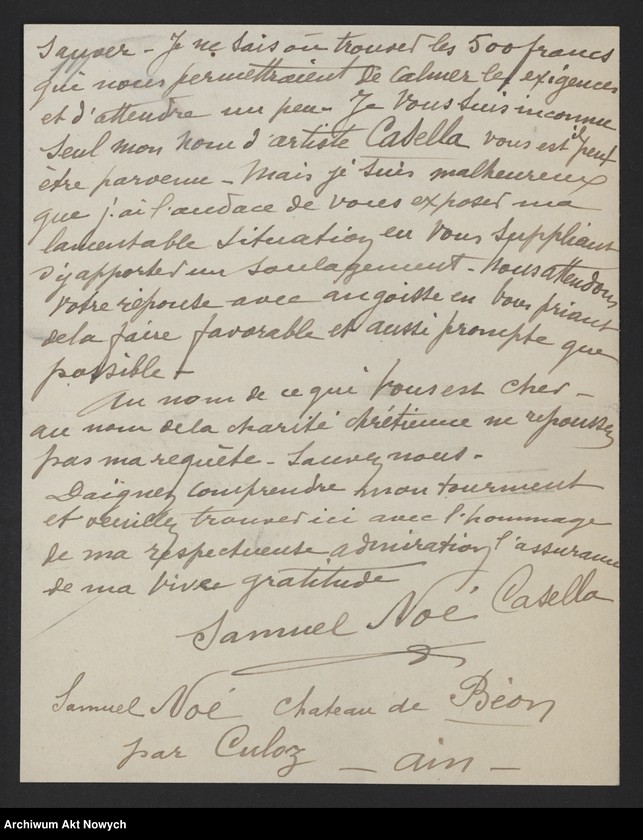 sauver - Je ne sais où trouver les 500 francs
qui nous permettraient de calmer les exigences
et d'attendre un peu - Je vous suis inconnu
seul mon nom d'artiste Casella vous est peut
être parvenu - Mais je suis malheureux
que j'ai l'audace de vous exposer ma
lamentable situation en vous suppliant
d'y apporter un soulagement - Nous attendons
votre réponse avec angoisse en vous priant
de la faire favorable et aussi prompte que
possible -
Au nom de ce qui vous est cher -
au nom de la charité chrétienne ne repoussez
pas ma requête - Sauvez nous -
Daignez comprendre mon tourment
et veuillez trouver ici avec l'hommage
de ma respectueuse admiration l'assurance
de ma vive gratitude
Samuel Noé Casella
Samuel Noé chateau de Béon
par Culoz - ain -
Archiwum Akt Nowych